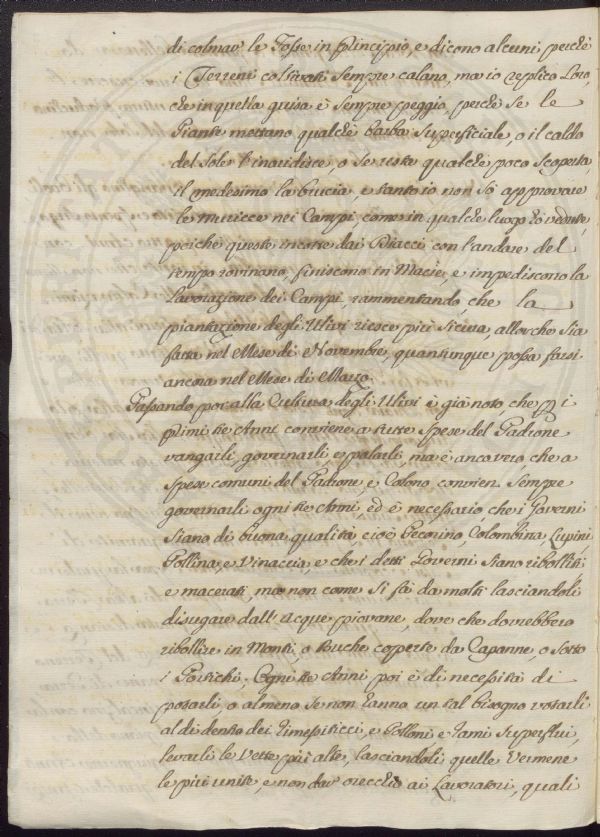 di colmar le Fosse in principio, e dicono alcuni perchè
i Terreni coltivati sempre calano, ma io replico loro,
che in questa guisa è sempre peggio, perchè se le
Piante mettano qualchè barba superficiale, o il caldo
del Sole l'inaridisce, o se resta qualchè poco scoperta,
il medesimo la brucia, e tanto io non sò approvare
le muricce nei Campi, come in qualchè luogo hò vedute,
poichè queste incotte dai Diacci con l'andare del
tempo rovinano, finiscono in Macie, e impediscono la
lavorazione dei Campi, rammentando, che la
piantazione degli Ulivi riesce più sicura, allorche sia
fatta nel Mese di Novembre, quantunque possa farsi
ancora nel Mese di Marzo.
Passando poi alla Cultura degli Ulivi è già noto, che p i
primi tre Anni conviene a tutte spese del Padrone
vangarli, governarli, e palarli, ma è anco vero che a
spese comuni del Padrone, e Colono convien sempre
governarli ogni tre Anni, ed è necessario, che i Governi
siano di buona qualità, cioè Pecorino, Colombina, Lupini
Pollina, e Vinaccia, e che i detti Governi siano ribolliti
e macerati, ma non come si fà da molti lasciandoli
disugare dall'Acque piovane, dove che dovrebbero
ribollire in Monti, o Buche coperte da Capanne, o sotto
i Portichi; Ogni tre Anni poi è di necessità di
potarli, o almeno se non hanno un tal bisogno votarli
al di dentro dei Rimessiticci, e Polloni e Rami superflui,
levarli le Vette più alte, lasciandoli quelle Vermene
le più unite, e non dar orecchio ai Lavoratori, quali